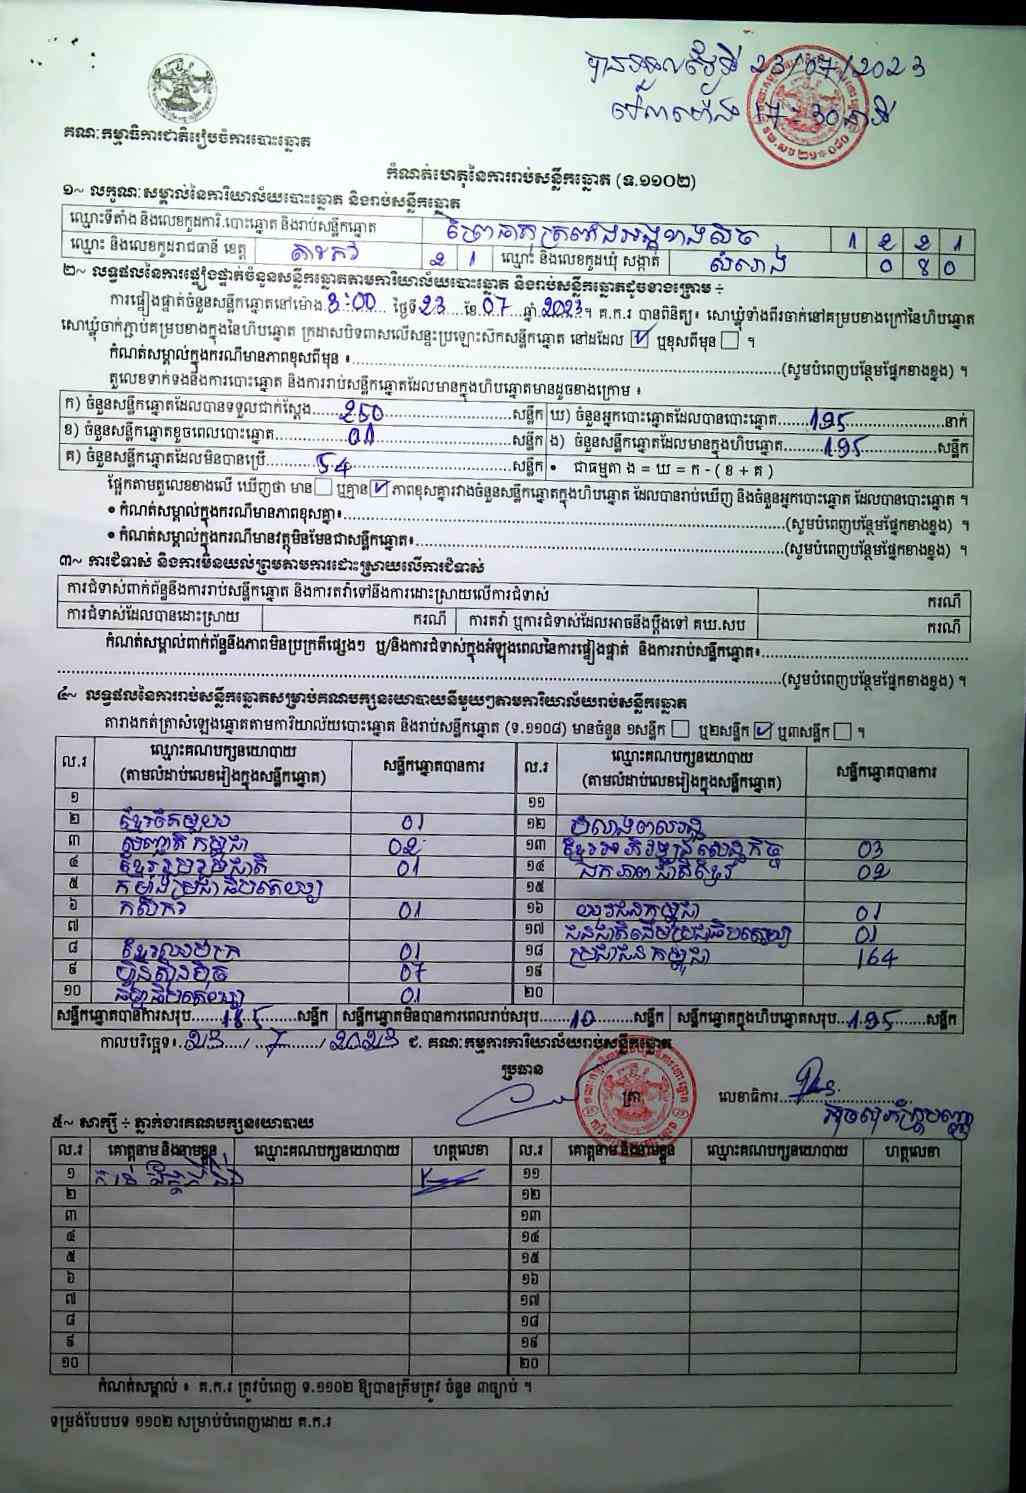 បានទទួលថ្ងៃទី 23/07/2023
វេលាម៉ោង 17:30នាទី
គណៈកម្មាធិការជាតិរៀបចំការបោះឆ្នោត
កំណត់ហេតុនៃការរាប់សន្លឹកឆ្នោត (ទ.១១០២)
១~ លក្ខណៈសម្គាល់នៃការិយាល័យបោះឆ្នោត និងរាប់សន្លឹកឆ្នោត
ឈ្មោះទីតាំង និងលេខកូដការិ.បោះឆ្នោត និងរាប់សន្លឹកឆ្នោត 1 2 2 1
ឈ្មោះ និងលេខកូដរាជធានី ខេត្ត តាកែវ 2 1 ឈ្មោះ និងលេខកូដឃុំ សង្កាត់ សំរោង 0 8 0
២~ លទ្ធផលនៃការផ្ទៀងផ្ទាត់ចំនួនសន្លឹកឆ្នោតតាមការិយាល័យបោះឆ្នោត និងរាប់សន្លឹកឆ្នោតដូចខាងក្រោម ÷
ការផ្ទៀងផ្ទាត់ចំនួនសន្លឹកឆ្នោតនៅម៉ោង 3:00 ថ្ងៃទី 23 ខែ 07 ឆ្នាំ 2023 ។ គ.ក.រ បានពិនិត្យ៖ សោឃ្មុំទាំងពីរចាក់នៅគម្របខាងក្រៅនៃហិបឆ្នោត
សោឃ្មុំចាក់ភ្ជាប់គម្របខាងក្នុងនៃហិបឆ្នោត ក្រដាសបិទពាសលើសន្ទះប្រឡោះសឹកសន្លឹកឆ្នោត នៅដដែល ☑ ឬខុសពីមុន ☐ ។
កំណត់សម្គាល់ក្នុងករណីមានភាពខុសពីមុន ៖ (សូមបំពេញបន្ថែមផ្នែកខាងខ្នង) ។
តួលេខទាក់ទងនឹងការបោះឆ្នោត និងការរាប់សន្លឹកឆ្នោតដែលមានក្នុងហិបឆ្នោតមានដូចខាងក្រោម ៖
ក) ចំនួនសន្លឹកឆ្នោតដែលបានទទួលជាក់ស្តែង 250 សន្លឹក ឃ) ចំនួនអ្នកបោះឆ្នោតដែលបានបោះឆ្នោត 195 នាក់
ខ) ចំនួនសន្លឹកឆ្នោតខូចពេលបោះឆ្នោត 01 សន្លឹក ង) ចំនួនសន្លឹកឆ្នោតដែលមានក្នុងហិបឆ្នោត 195 សន្លឹក
គ) ចំនួនសន្លឹកឆ្នោតដែលមិនបានប្រើ 54 សន្លឹក • ជាធម្មតា ង = ឃ = ក - ( ខ + គ )
ផ្អែកតាមតួលេខខាងលើ ឃើញថា មាន ☐ ឬគ្មាន ☑ ភាពខុសគ្នារវាងចំនួនសន្លឹកឆ្នោតក្នុងហិបឆ្នោត ដែលបានរាប់ឃើញ និងចំនួនអ្នកបោះឆ្នោត ដែលបានបោះឆ្នោត ។
• កំណត់សម្គាល់ក្នុងករណីមានភាពខុសគ្នា៖ (សូមបំពេញបន្ថែមផ្នែកខាងខ្នង) ។
• កំណត់សម្គាល់ក្នុងករណីមានវត្ថុមិនមែនជាសន្លឹកឆ្នោត៖ (សូមបំពេញបន្ថែមផ្នែកខាងខ្នង) ។
៣~ ការជំទាស់ និងការមិនយល់ព្រមតាមការដោះស្រាយលើការជំទាស់
ការជំទាស់ពាក់ព័ន្ធនឹងការរាប់សន្លឹកឆ្នោត និងការតវ៉ាទៅនឹងការដោះស្រាយលើការជំទាស់ ករណី
ការជំទាស់ដែលបានដោះស្រាយ ករណី ការតវ៉ា ឬការជំទាស់ដែលអាចនឹងប្តឹងទៅ គឃ.សប ករណី
កំណត់សម្គាល់ពាក់ព័ន្ធនឹងភាពមិនប្រក្រតីផ្សេងៗ ឬ/និងការជំទាស់ក្នុងអំឡុងពេលនៃការផ្ទៀងផ្ទាត់ និងការរាប់សន្លឹកឆ្នោត៖
(សូមបំពេញបន្ថែមផ្នែកខាងខ្នង) ។
៤~ លទ្ធផលនៃការរាប់សន្លឹកឆ្នោតសម្រាប់គណបក្សនយោបាយនីមួយៗតាមការិយាល័យរាប់សន្លឹកឆ្នោត
តារាងកត់ត្រាសំឡេងឆ្នោតតាមការិយាល័យបោះឆ្នោត និងរាប់សន្លឹកឆ្នោត (ទ.១១០៨) មានចំនួន ១សន្លឹក ☐ ឬ២សន្លឹក ☑ ឬ៣សន្លឹក ☐ ។
ល.រ ឈ្មោះគណបក្សនយោបាយ (តាមលំដាប់លេខរៀងក្នុងសន្លឹកឆ្នោត) សន្លឹកឆ្នោតបានការ ល.រ ឈ្មោះគណបក្សនយោបាយ (តាមលំដាប់លេខរៀងក្នុងសន្លឹកឆ្នោត) សន្លឹកឆ្នោតបានការ
១ ១១
២ ខ្មែរតែមួយ 01 ១២
៣ សញ្ជាតិកម្ពុជា 02 ១៣ ខ្មែរអភិវឌ្ឍន៍សេដ្ឋកិច្ច 03
៤ ខ្មែររួបរួមជាតិ 01 ១៤ ឯកភាពជាតិខ្មែរ 02
៥ កម្លាំងប្រជាធិបតេយ្យ ១៥
៦ កសិករ 01 ១៦ យុវជនកម្ពុជា 01
៧ ១៧ ជនជាតិដើមប្រជាធិបតេយ្យ 01
៨ ខ្មែរឈប់ក្រ 01 ១៨ ប្រជាជនកម្ពុជា 164
៩ ហ្វ៊ុនស៊ិនប៉ិច 07 ១៩
១០ ធម្មាធិបតេយ្យ 01 ២០
សន្លឹកឆ្នោតបានការសរុប 185 សន្លឹក សន្លឹកឆ្នោតមិនបានការពេលរាប់សរុប 10 សន្លឹក សន្លឹកឆ្នោតក្នុងហិបឆ្នោតសរុប 195 សន្លឹក
កាលបរិច្ឆេទ៖ 23 / 7 / 2023 ជ. គណៈកម្មការការិយាល័យរាប់សន្លឹកឆ្នោត
ប្រធាន
ត្រា
លេខាធិការ
៥~ សាក្សី ÷ ភ្នាក់ងារគណបក្សនយោបាយ
ល.រ គោត្តនាម និងនាមខ្លួន ឈ្មោះគណបក្សនយោបាយ ហត្ថលេខា ល.រ គោត្តនាម និងនាមខ្លួន ឈ្មោះគណបក្សនយោបាយ ហត្ថលេខា
១ ១១
២ ១២
៣ ១៣
៤ ១៤
៥ ១៥
៦ ១៦
៧ ១៧
៨ ១៨
៩ ១៩
១០ ២០
កំណត់សម្គាល់ ៖ គ.ក.រ ត្រូវបំពេញ ទ.១១០២ ឱ្យបានត្រឹមត្រូវ ចំនួន ៣ច្បាប់ ។
ទម្រង់បែបបទ ១១០២ សម្រាប់បំពេញដោយ គ.ក.រ